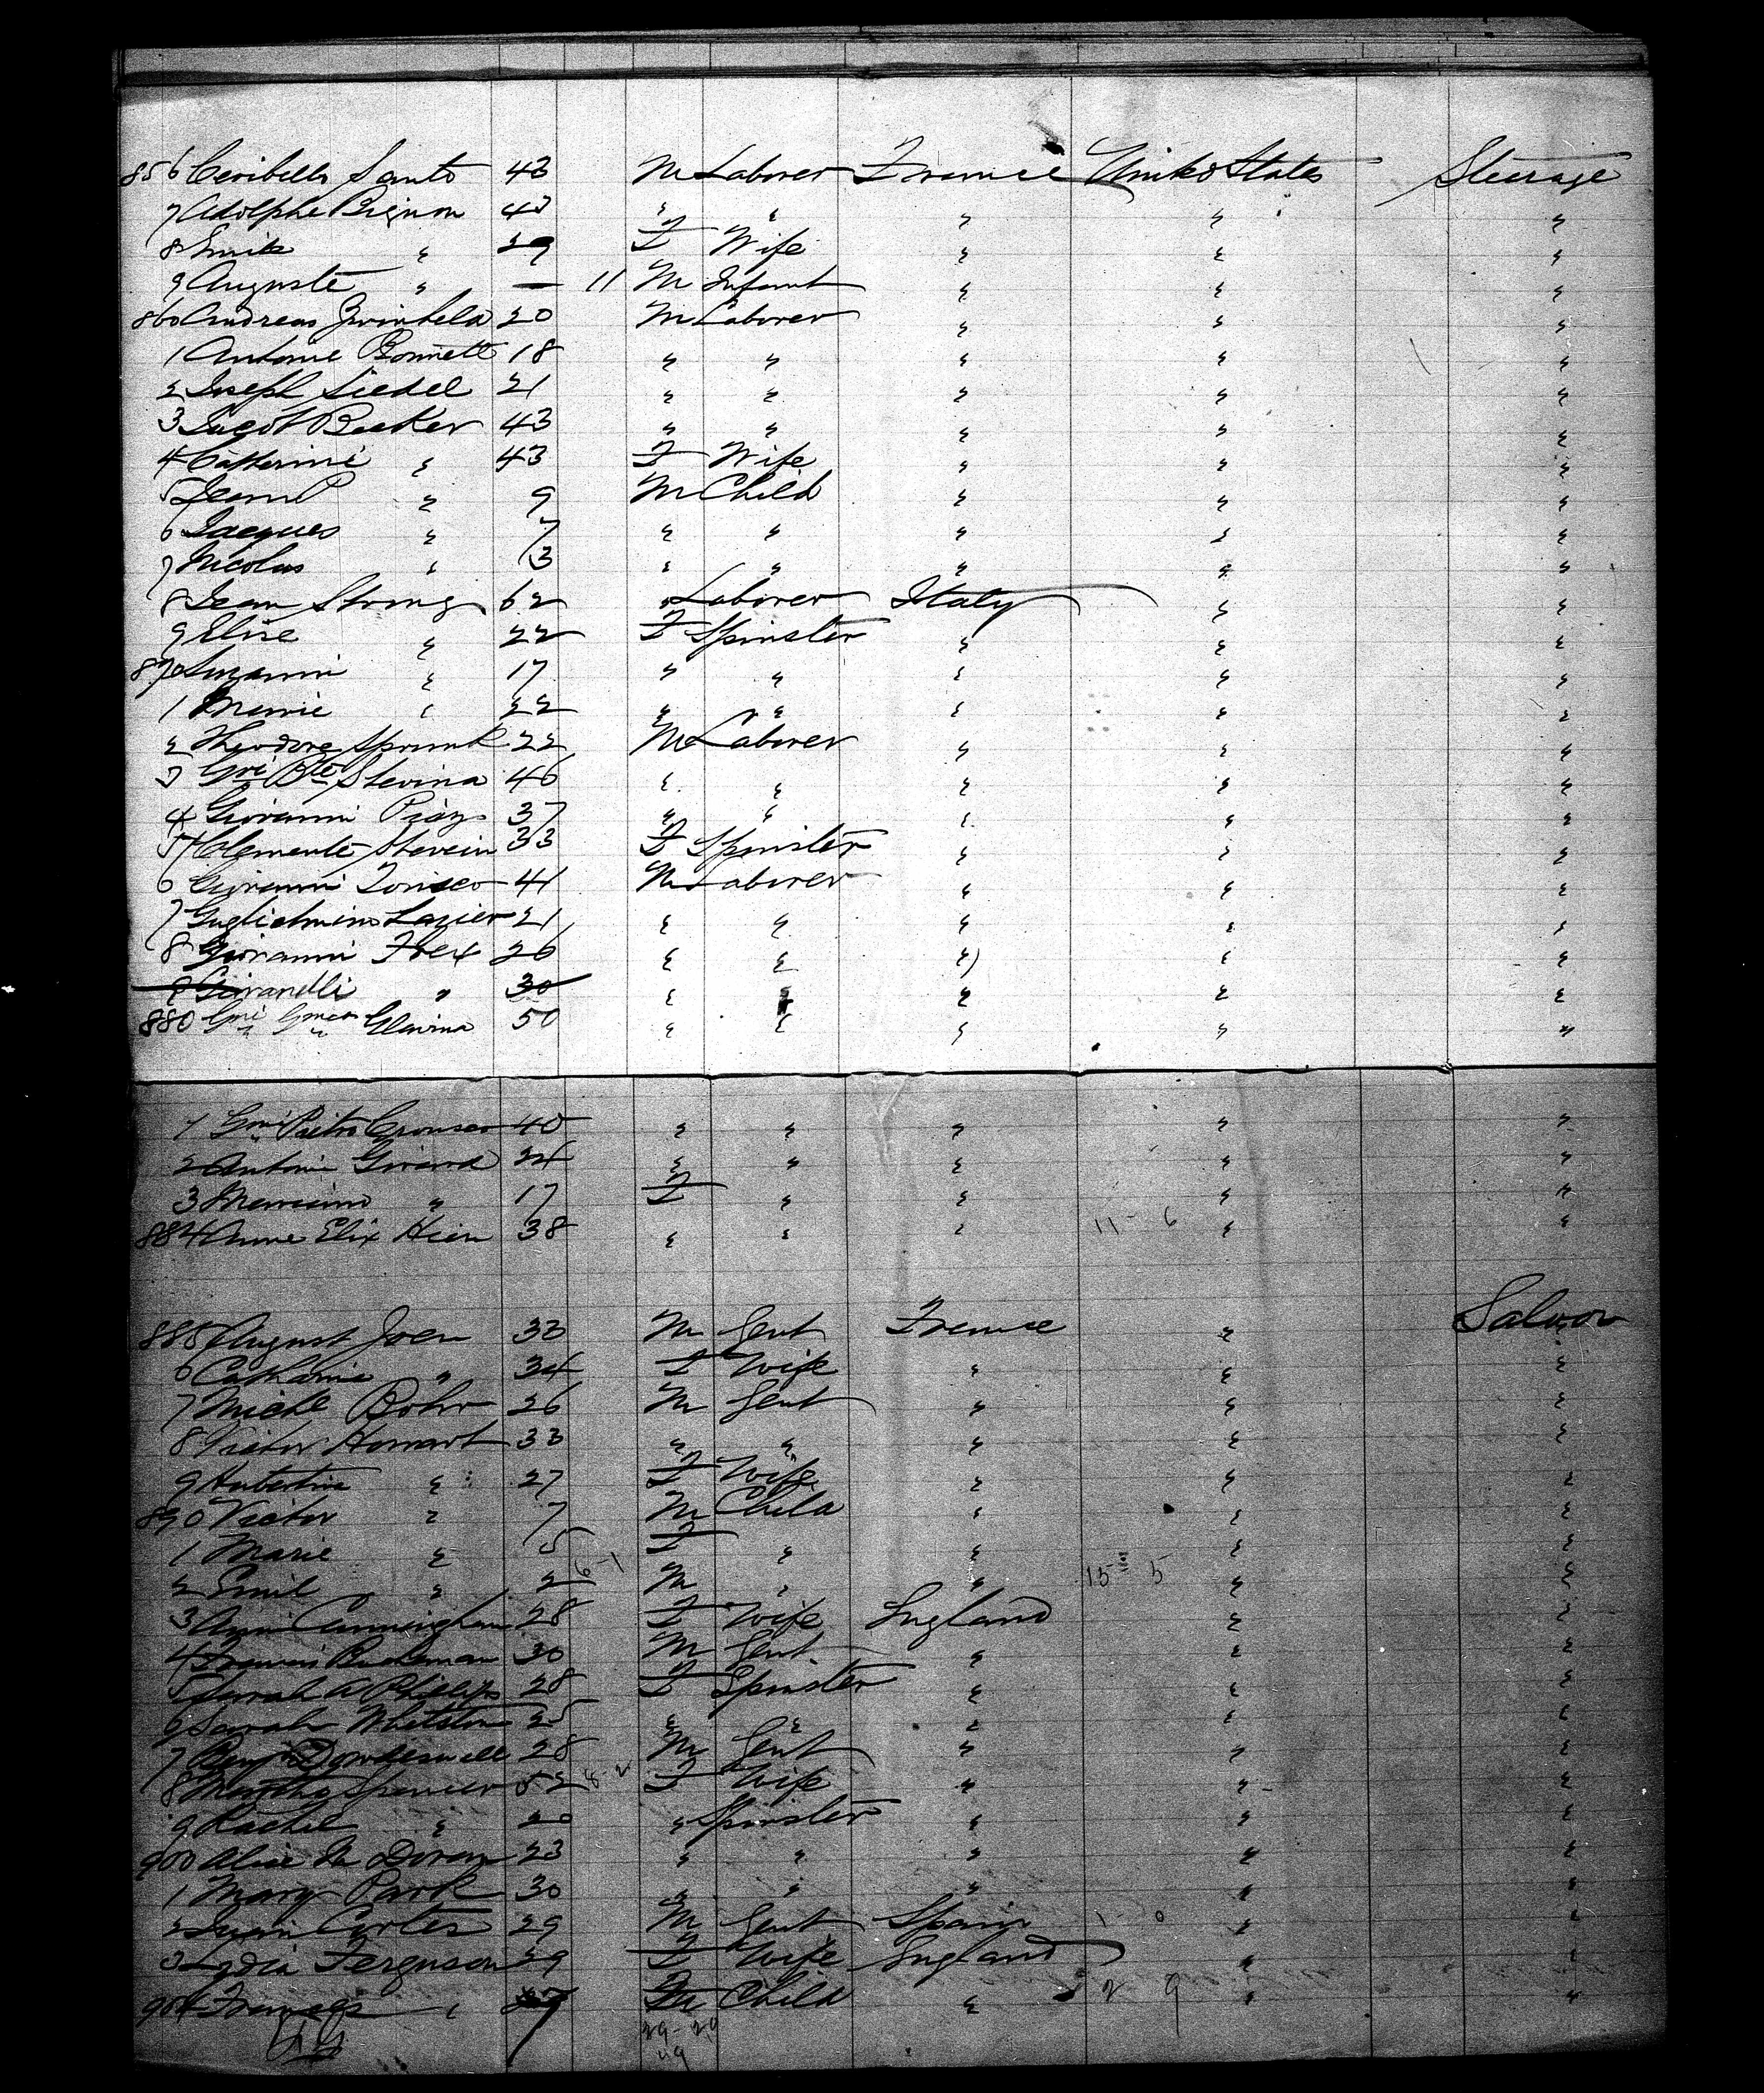 856 Ceribelli Santo 43 M Laborer France United States Steerage
7 Adolphe Bignon 43 " " " " "
8 Emile " 29 F Wife " " "
9 Auguste " — 11 M Infant " " "
860 Andreas 20 M Laborer " " "
1 Antoine Bonnett 18 " " " " "
2 Joseph Siedel 21 " " " " "
3 Jacob Becker 43 " " " " "
4 Catherine " 43 F Wife " " "
5 Jean P " 9 M Child " " "
6 Jacques " 7 " " " " "
7 Nicolas " 3 " " " " "
8 Jean Strong 62 " Laborer Italy " "
9 Elise " 22 F Spinster " " "
870 Suzanni " 17 " " " " "
1 Marie " 22 " " " " "
2 Theodore Sprunk 22 M Laborer " " "
3 Gni Bte Stevina 46 " " " " "
4 Giovanni 37 " " " " "
5 Clemente Stevein 33 F Spinster " " "
6 Giovanni 41 M Laborer " " "
7 Guglielmino Lazier 21 " " " " "
8 Giovanni 26 " " " " "
9 Giovanelli " 30 " " " " "
880 Gni Glavina 50 " " " " "
1 Gni Pietro 40 " " " " "
2 Antoni Girard 24 " " " " "
3 " 17 F " " " "
884 Anne Elix Hien 38 " " " 11 - 6 " "
885 August Joen 33 M Gent France " Saloon
6 Catharine " 34 F Wife " " "
7 Michl Bohr 26 M Gent " " "
8 Victor Homart 33 " " " " "
9 Hubertine " 27 F Wife " " "
890 Victor " 7 M Child " " "
1 Marie " 5 F " " " "
2 Emil " 2 6-1 M " " 15 = 5 " "
3 Ann Cunningham 28 F Wife England " "
4 Francis Buchanan 30 M Gent " " "
5 Sarah A Phillips 28 F Spinster " " "
6 Sarah Whetston 25 " " " " "
7 Benjn Dowdeswell 28 M Gent " " "
8 Martha Spencer 52 8-2 F Wife " " "
9 Rachel " 20 " Spinster " " "
900 Alice M Doran 23 " " " " "
1 Mary Park 30 " " " " "
2 Cortes 29 M Gent Spain 1 - 0 " "
3 Lydia Ferguson 29 F Wife England " "
904 " 7 M Child " 2 9 " "
29-20
49